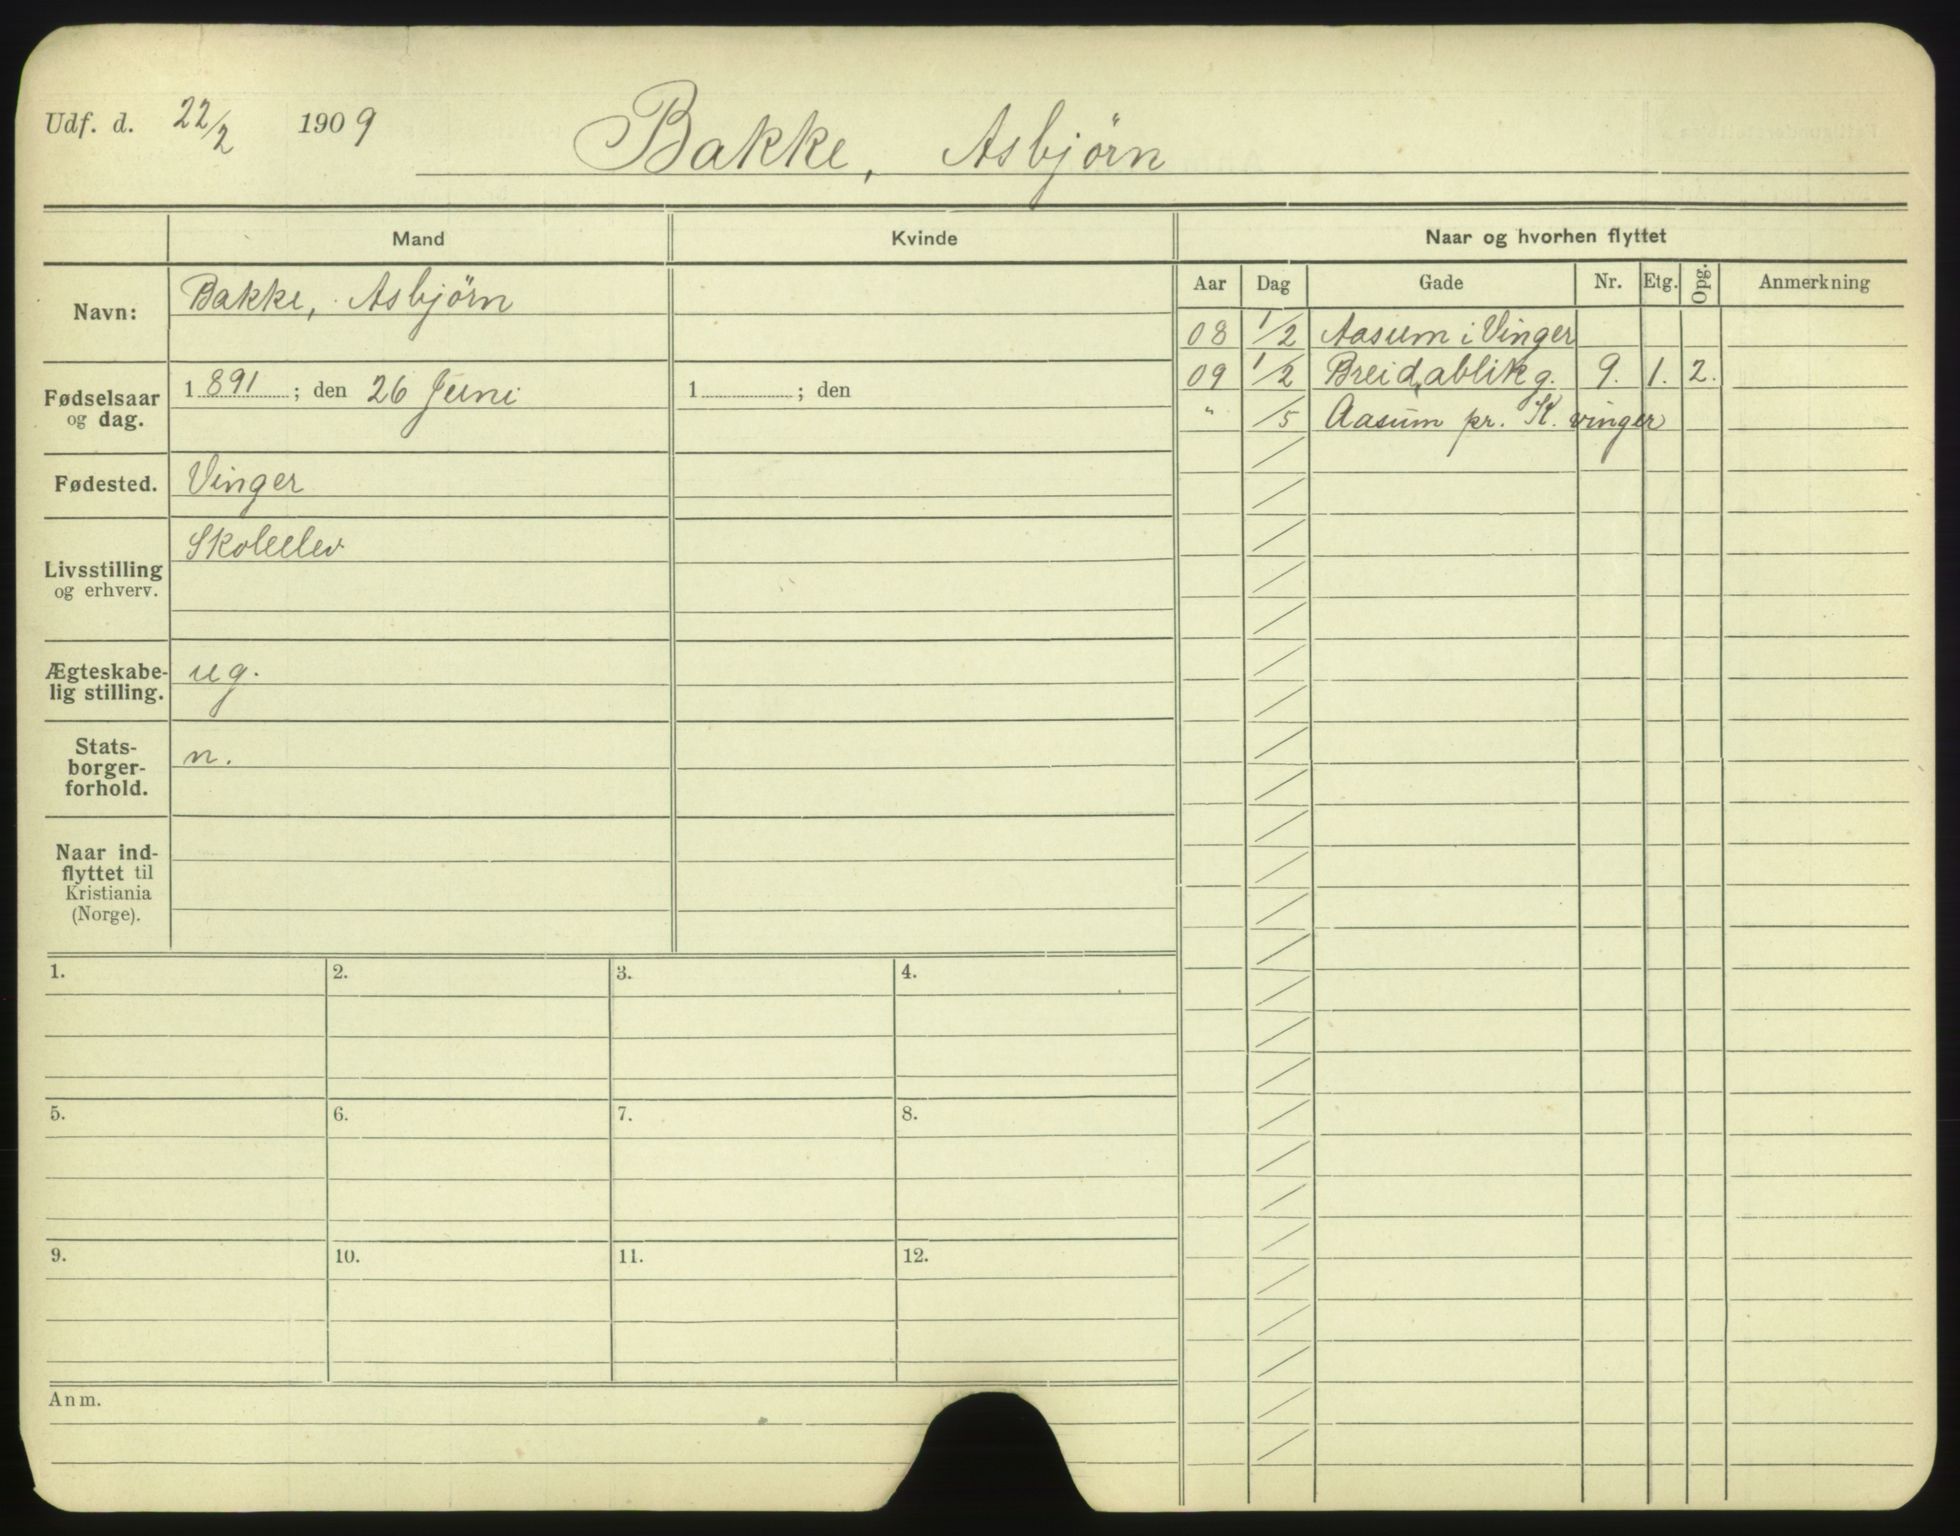 Udf. d. 22/2 1909
Bakke, Asbjörn
Mand
Kvinde
Naar og hvorhen flyttet
Navn:
Bakke, Asbjörn
Aar Dag Gade Nr. Etg. Opg. Anmerkning
08 1/2 Aasum i Vinger
09 1/2 Breidablikg. 9. 1. 2.
" /5 Aasum pr. K.vinger
Fødselsaar
og dag.
1891; den 26 Juni
1 ; den
Fødested.
Vinger
Livsstilling
og erhverv.
Skoleelev
Ægteskabe-
lig stilling.
ug.
Stats-
borger-
forhold.
n.
Naar ind-
flyttet til
Kristiania
(Norge).
1. 2. 3. 4.
5. 6. 7. 8.
9. 10. 11. 12.
Anm.